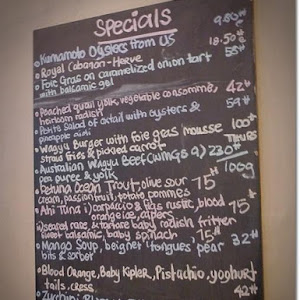 Specials
Kumamoto Oysters from US 9.50#
Royal Cabanon-Herve 18.50#
Foie Gras on caramelized onion tart
with balsamic gel
Poached quail yolk, vegetable consommé, 42#
heirloom radish
Petite Salad of oxtail with oysters &
pineapple
Wagyu Burger with foie gras mousse 100#
straw fries & pickled carrot
Australian Wagyu Beef (WMGS 9) 230#
pea puree & yolk 100g
Petuna Ocean Trout, olive sour 75#
cream, passionfruit, potato pommes
Ahi Tuna i) carpaccio & figs rustic, blood 75#
orange ice, capers
baby radish fritter
sweet balsamic, baby spinach 75#
Mango Soup, beignet 'tongues' pear 32#
bits & sorbet
Blood Orange, Baby Kipler, Pistachio, yoghurt
tails, cress 42#
Zucchini